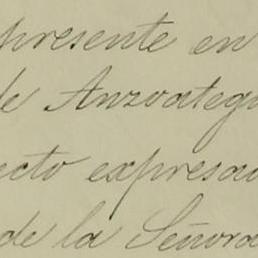 presente en
de Anzoategu
ecto expresad
de la Señora